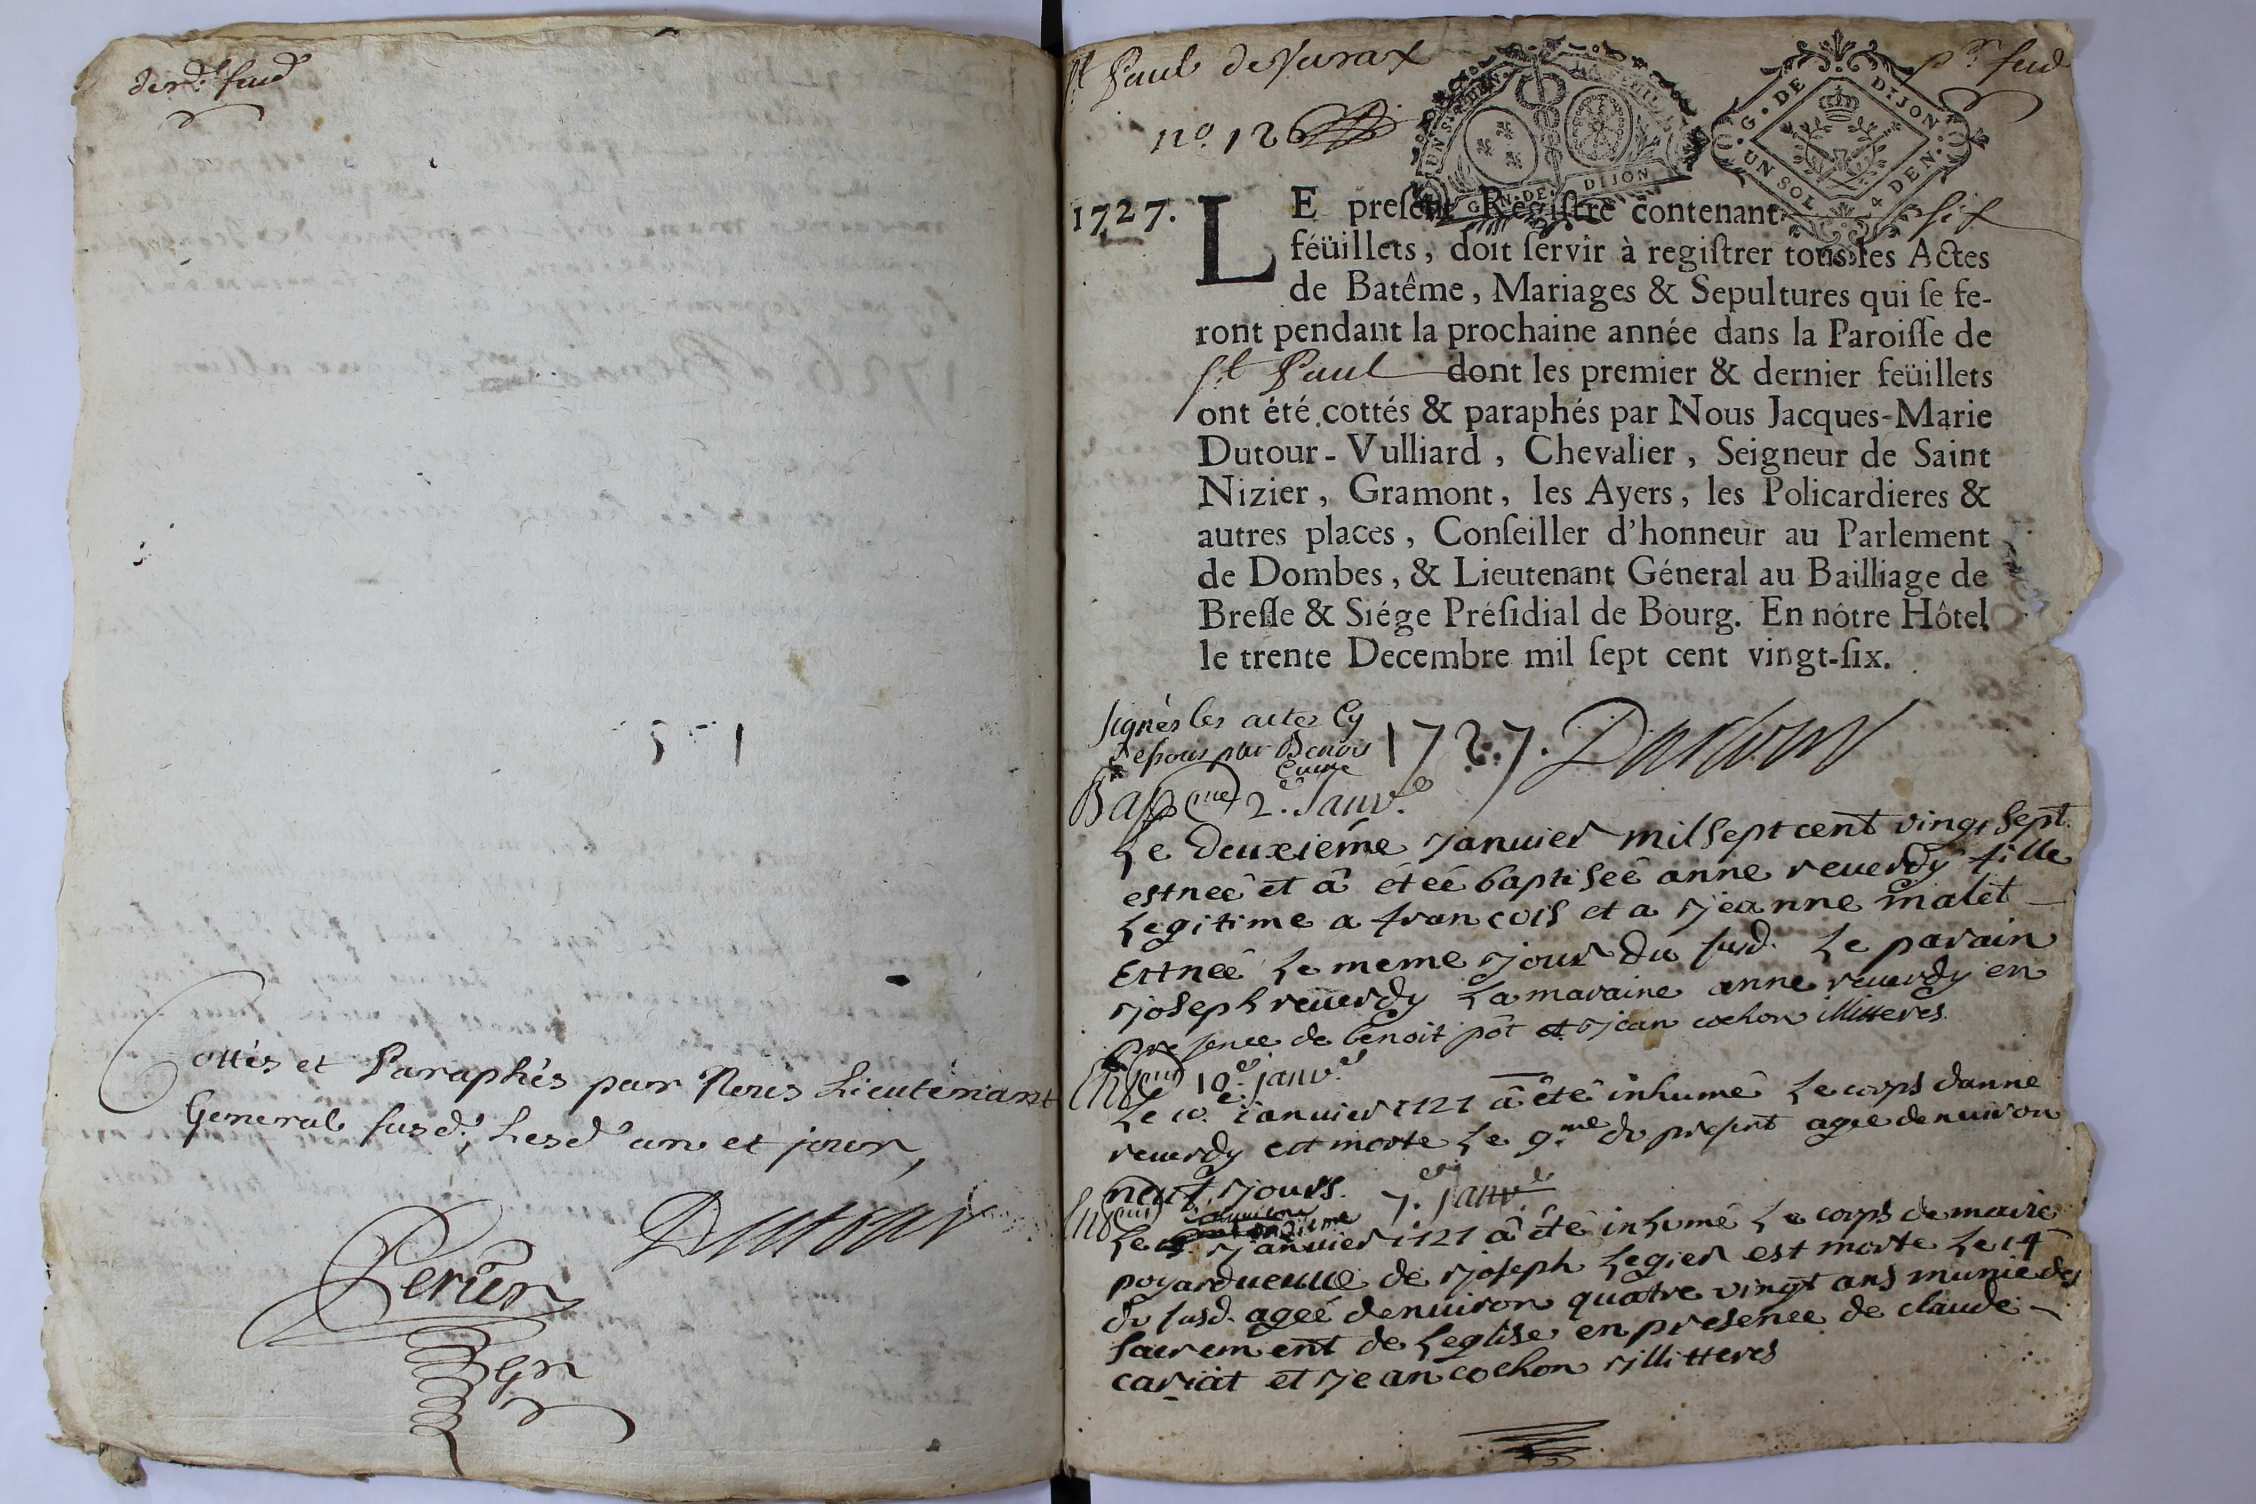 der.r fuid
Cottés et Paraphés par Nous Lieutenant
General susd.t, Lesd.t an et jour,
Dutour
Perier
St Paul de Varax
pr. fuid
no. 126
UN S. 4 DEN.
GEN. DE DIJON
G. DE DIJON
UN SOL 4 DEN.
1727. LE preſent Regiſtre contenant ſix
féüillets, doit ſervir à regiſtrer tous les Actes
de Batême, Mariages & Sepultures qui ſe fe-
ront pendant la prochaine année dans la Paroiſſe de
St Paul dont les premier & dernier feüillets
ont été cottés & paraphés par Nous Jacques-Marie
Dutour-Vulliard, Chevalier, Seigneur de Saint
Nizier, Gramont, les Ayers, les Policardieres &
autres places, Conſeiller d'honneur au Parlement
de Dombes, & Lieutenant Géneral au Bailliage de
Breſſe & Siége Préſidial de Bourg. En nôtre Hôtel
le trente Decembre mil ſept cent vingt-ſix.
signés les actes Cy
dessous par Benois
Cure
1727. Dutour
Bapme 2.e Janv.e
Le deuxiéme janvier mil sept cent vingt sept
est neé et â étée baptiseé anne reverdy fille
Legitime a francois et a jeanne malet
Est neé Le meme jour du susd. Le parain
joseph reverdy La maraine anne reverdy en
presence de benoit pôt et jean cochon illitteres
10.e janv.e
Le 10.e ianvier 1727 â été inhumé Le corps danne
reverdy est morte Le 9.me du present ageé denviron
neuf jours.
7.e janv.e
Le janvier 1727 â été inhumé Le corps de marie
poyard veuve de joseph Legier est morte Le 14
du susd. ageé denviron quatre vingt ans munie des
sacrement de Leglise en presence de claude
cariat et jean cochon illitteres